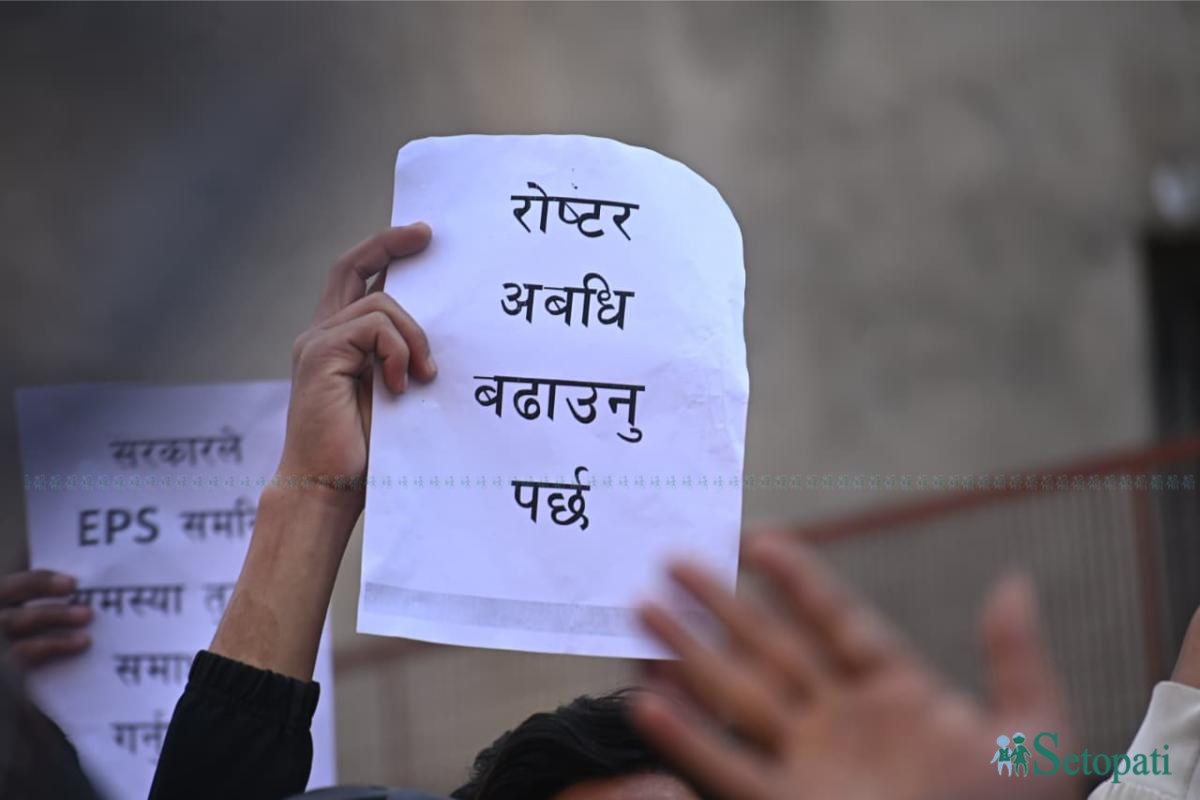 रोष्टर
अबधि
बढाउनु
पर्छ
सरकारले
EPS
समस्या
Setopati